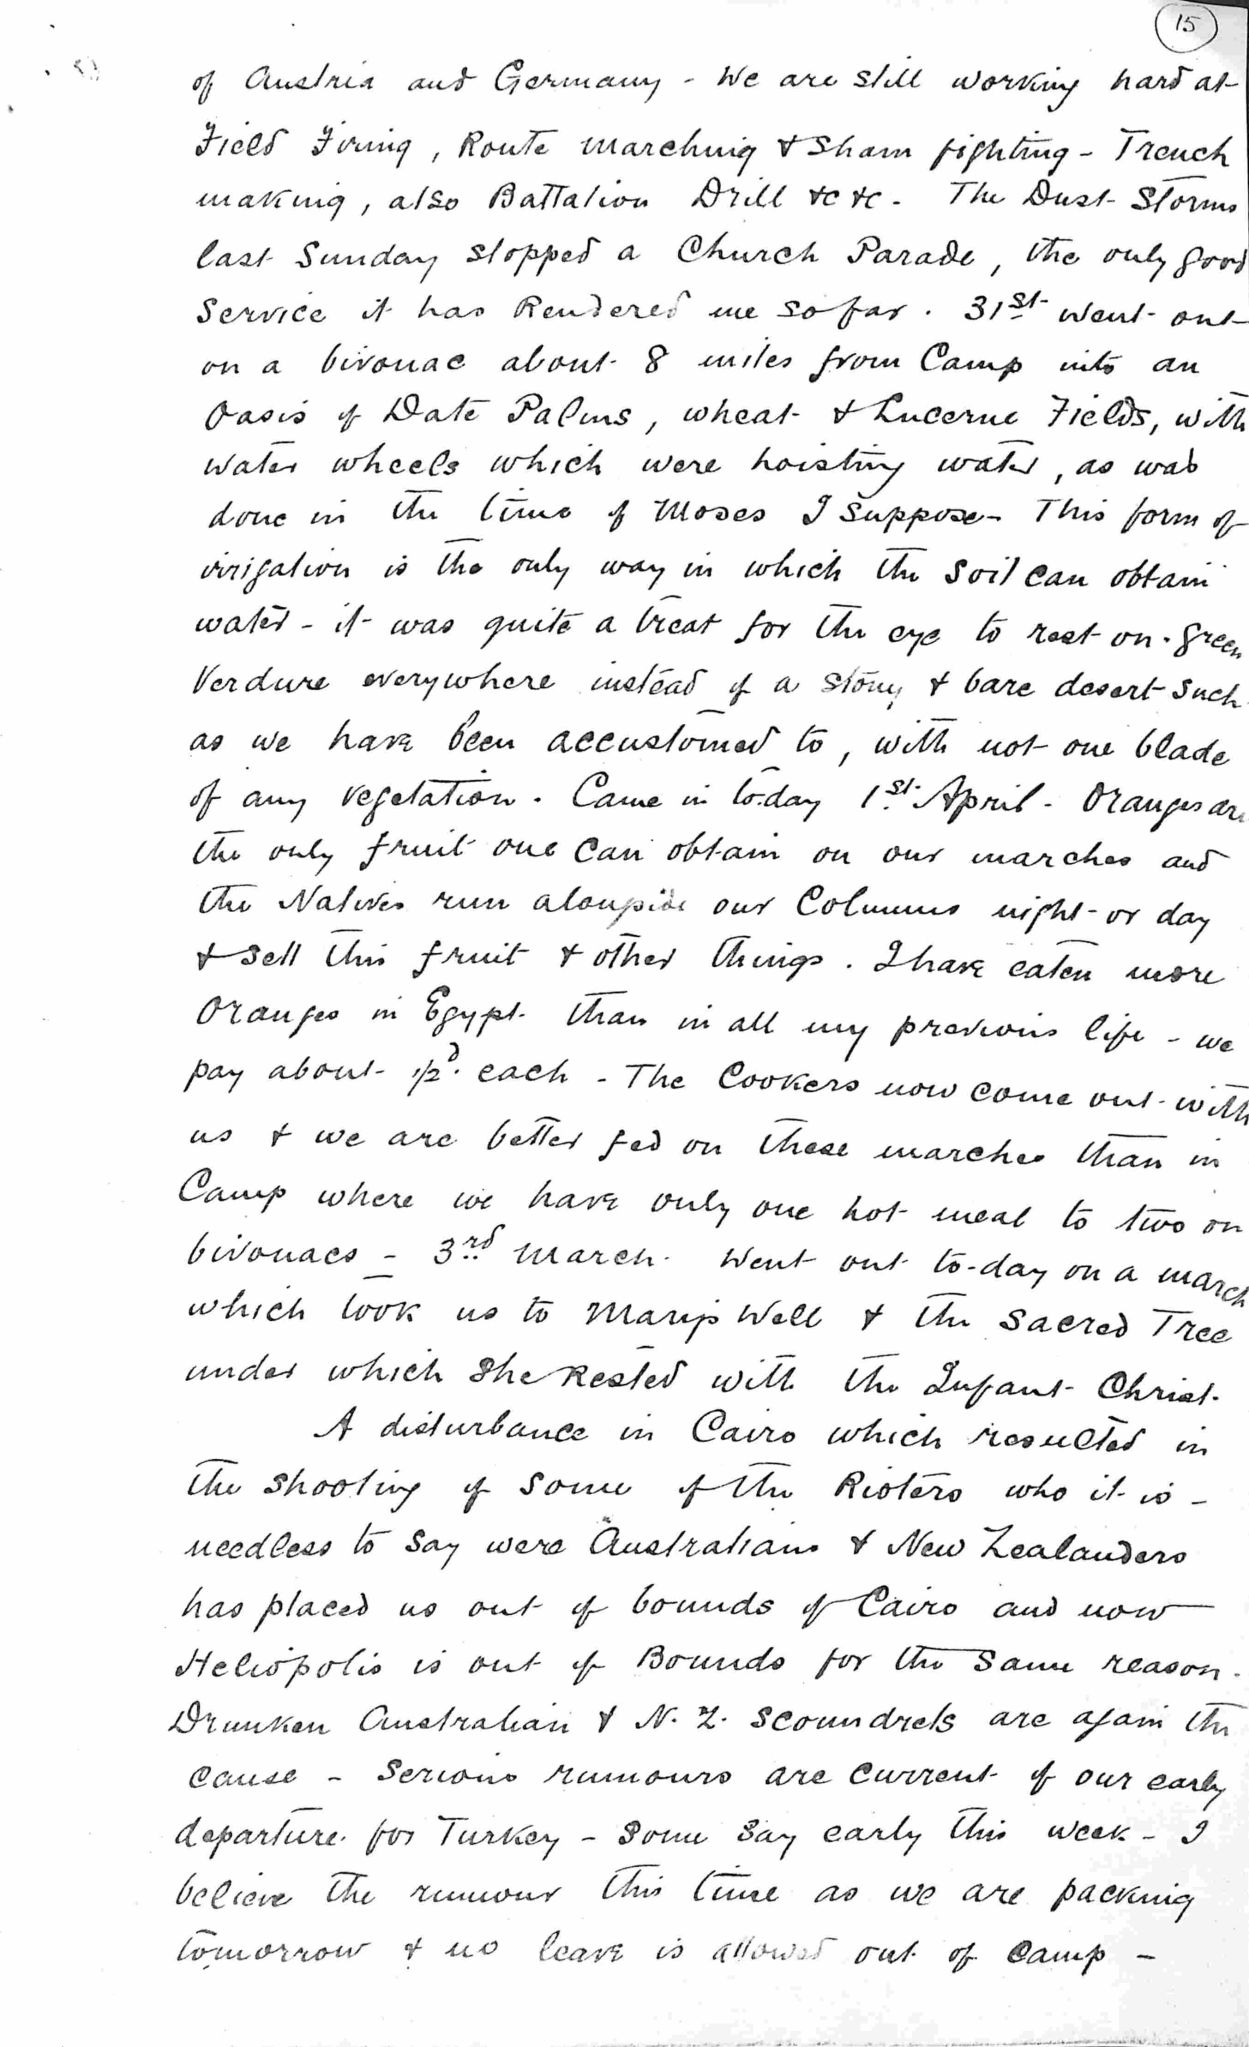 15
of Austria and Germany - We are still working hard at
Field Firing, Route marching & Sham fighting - Trench
making, also Battalion Drill &c &c - The Dust Storms
last Sunday stopped a Church Parade, the only good
Service it has Rendered me so far. 31st went out
on a bivouac about 8 miles from Camp into an
Oasis of Date Palms, wheat & Lucerne Fields, with
water wheels which were hoisting water, as was
done in the time of Moses I suppose - This form of
irrigation is the only way in which the soil can obtain
water - it was quite a treat for the eye to rest on green
Verdure everywhere instead of a stony & bare desert such
as we have been accustomed to, with not one blade
of any vegetation. Came in to-day 1st April - Oranges are
the only fruit one can obtain on our marches and
the Natives run alongside our Columns night or day
& sell this fruit & other things. I have eaten more
Oranges in Egypt than in all my previous life - we
pay about 1/2d. each - The Cookers now come out with
us & we are better fed on these marches than in
Camp where we have only one hot meal to two on
bivouacs - 3rd March. Went out to-day on a march
which took us to Marys Well & the Sacred Tree
under which She Rested with the Infant Christ.
A disturbance in Cairo which resulted in
the shooting of some of the Rioters who it is -
needless to say were Australians & New Zealanders
has placed us out of bounds of Cairo and now
Heliopolis is out of Bounds for the same reason.
Drunken Australian & N.Z. scoundrels are again the
cause - Serious rumours are current of our early
departure for Turkey - some say early this week - I
believe the rumour this time as we are packing
tomorrow & no leave is allowed out of Camp -